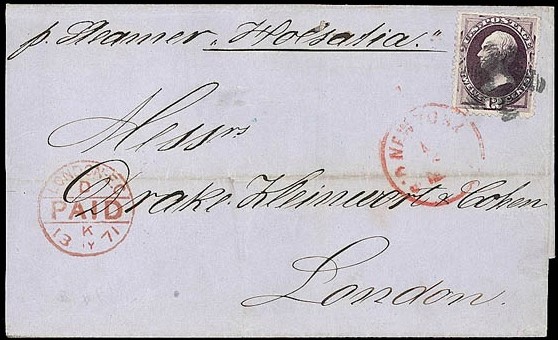 p. Steamer „Holsatia."
U.S. POSTAGE
TWELVE 12 CENTS
Messrs
NEW YORK
LONDON
D
PAID
K
13 71
Drake Kleinwort & Cohen
London.